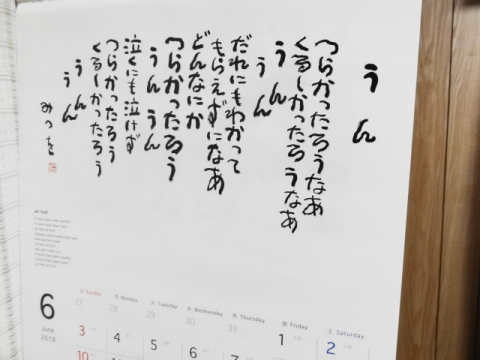 うん
つらかったろうなあ
くるしかったろうなあ
うん うん
だれにもわかって
もらえずになあ
どんなにか
つらかったろう
うん うん
泣くにも泣けず
つらかったろう
くるしかったろう
うん うん
みつを
6
June
2018
日 Sunday
月 Monday
火 Tuesday
水 Wednesday
木 Thursday
金 Friday
土 Saturday
27 28 29 30 31 1 2
3 4 5 6 7 8
10